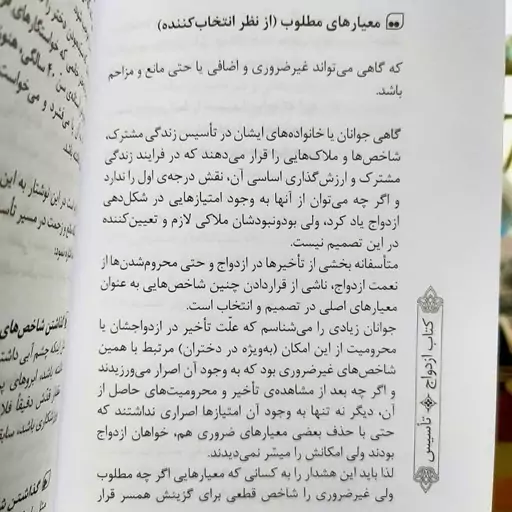 معیارهای مطلوب (از نظر انتخاب‌کننده)
که گاهی می‌تواند غیرضروری و اضافی یا حتی مانع و مزاحم
باشد.
گاهی جوانان یا خانواده‌های ایشان در تأسیس زندگی مشترک،
شاخص‌ها و ملاک‌هایی را قرار می‌دهند که در فرایند زندگی
مشترک و ارزش‌گذاری اساسی آن، نقش درجه‌ی اول را ندارد
و اگر چه می‌توان از آنها به وجود امتیازهایی در شکل‌دهی
ازدواج یاد کرد، ولی بودونبودشان ملاکی لازم و تعیین‌کننده
در این تصمیم نیست.
متأسفانه بخشی از تأخیرها در ازدواج و حتی محروم‌شدن‌ها از
نعمت ازدواج، ناشی از قراردادن چنین شاخص‌هایی به عنوان
معیارهای اصلی در تصمیم و انتخاب است.
جوانان زیادی را می‌شناسم که علّت تأخیر در ازدواجشان یا
محرومیت از این امکان (به‌ویژه در دختران) مرتبط با همین
شاخص‌های غیرضروری بود که به وجود آن اصرار می‌ورزیدند
و اگر چه بعد از مشاهده‌ی تأخیر و محرومیت‌های حاصل از
آن، دیگر نه تنها به وجود آن امتیازها اصراری نداشتند که
حتی با حذف بعضی معیارهای ضروری هم، خواهان ازدواج
بودند ولی امکانش را میسّر نمی‌دیدند.
لذا باید این هشدار را به کسانی که معیارهایی اگر چه مطلوب
ولی غیرضروری را شاخص قطعی برای گزینش همسر قرار
کتاب ازدواج تأسیس